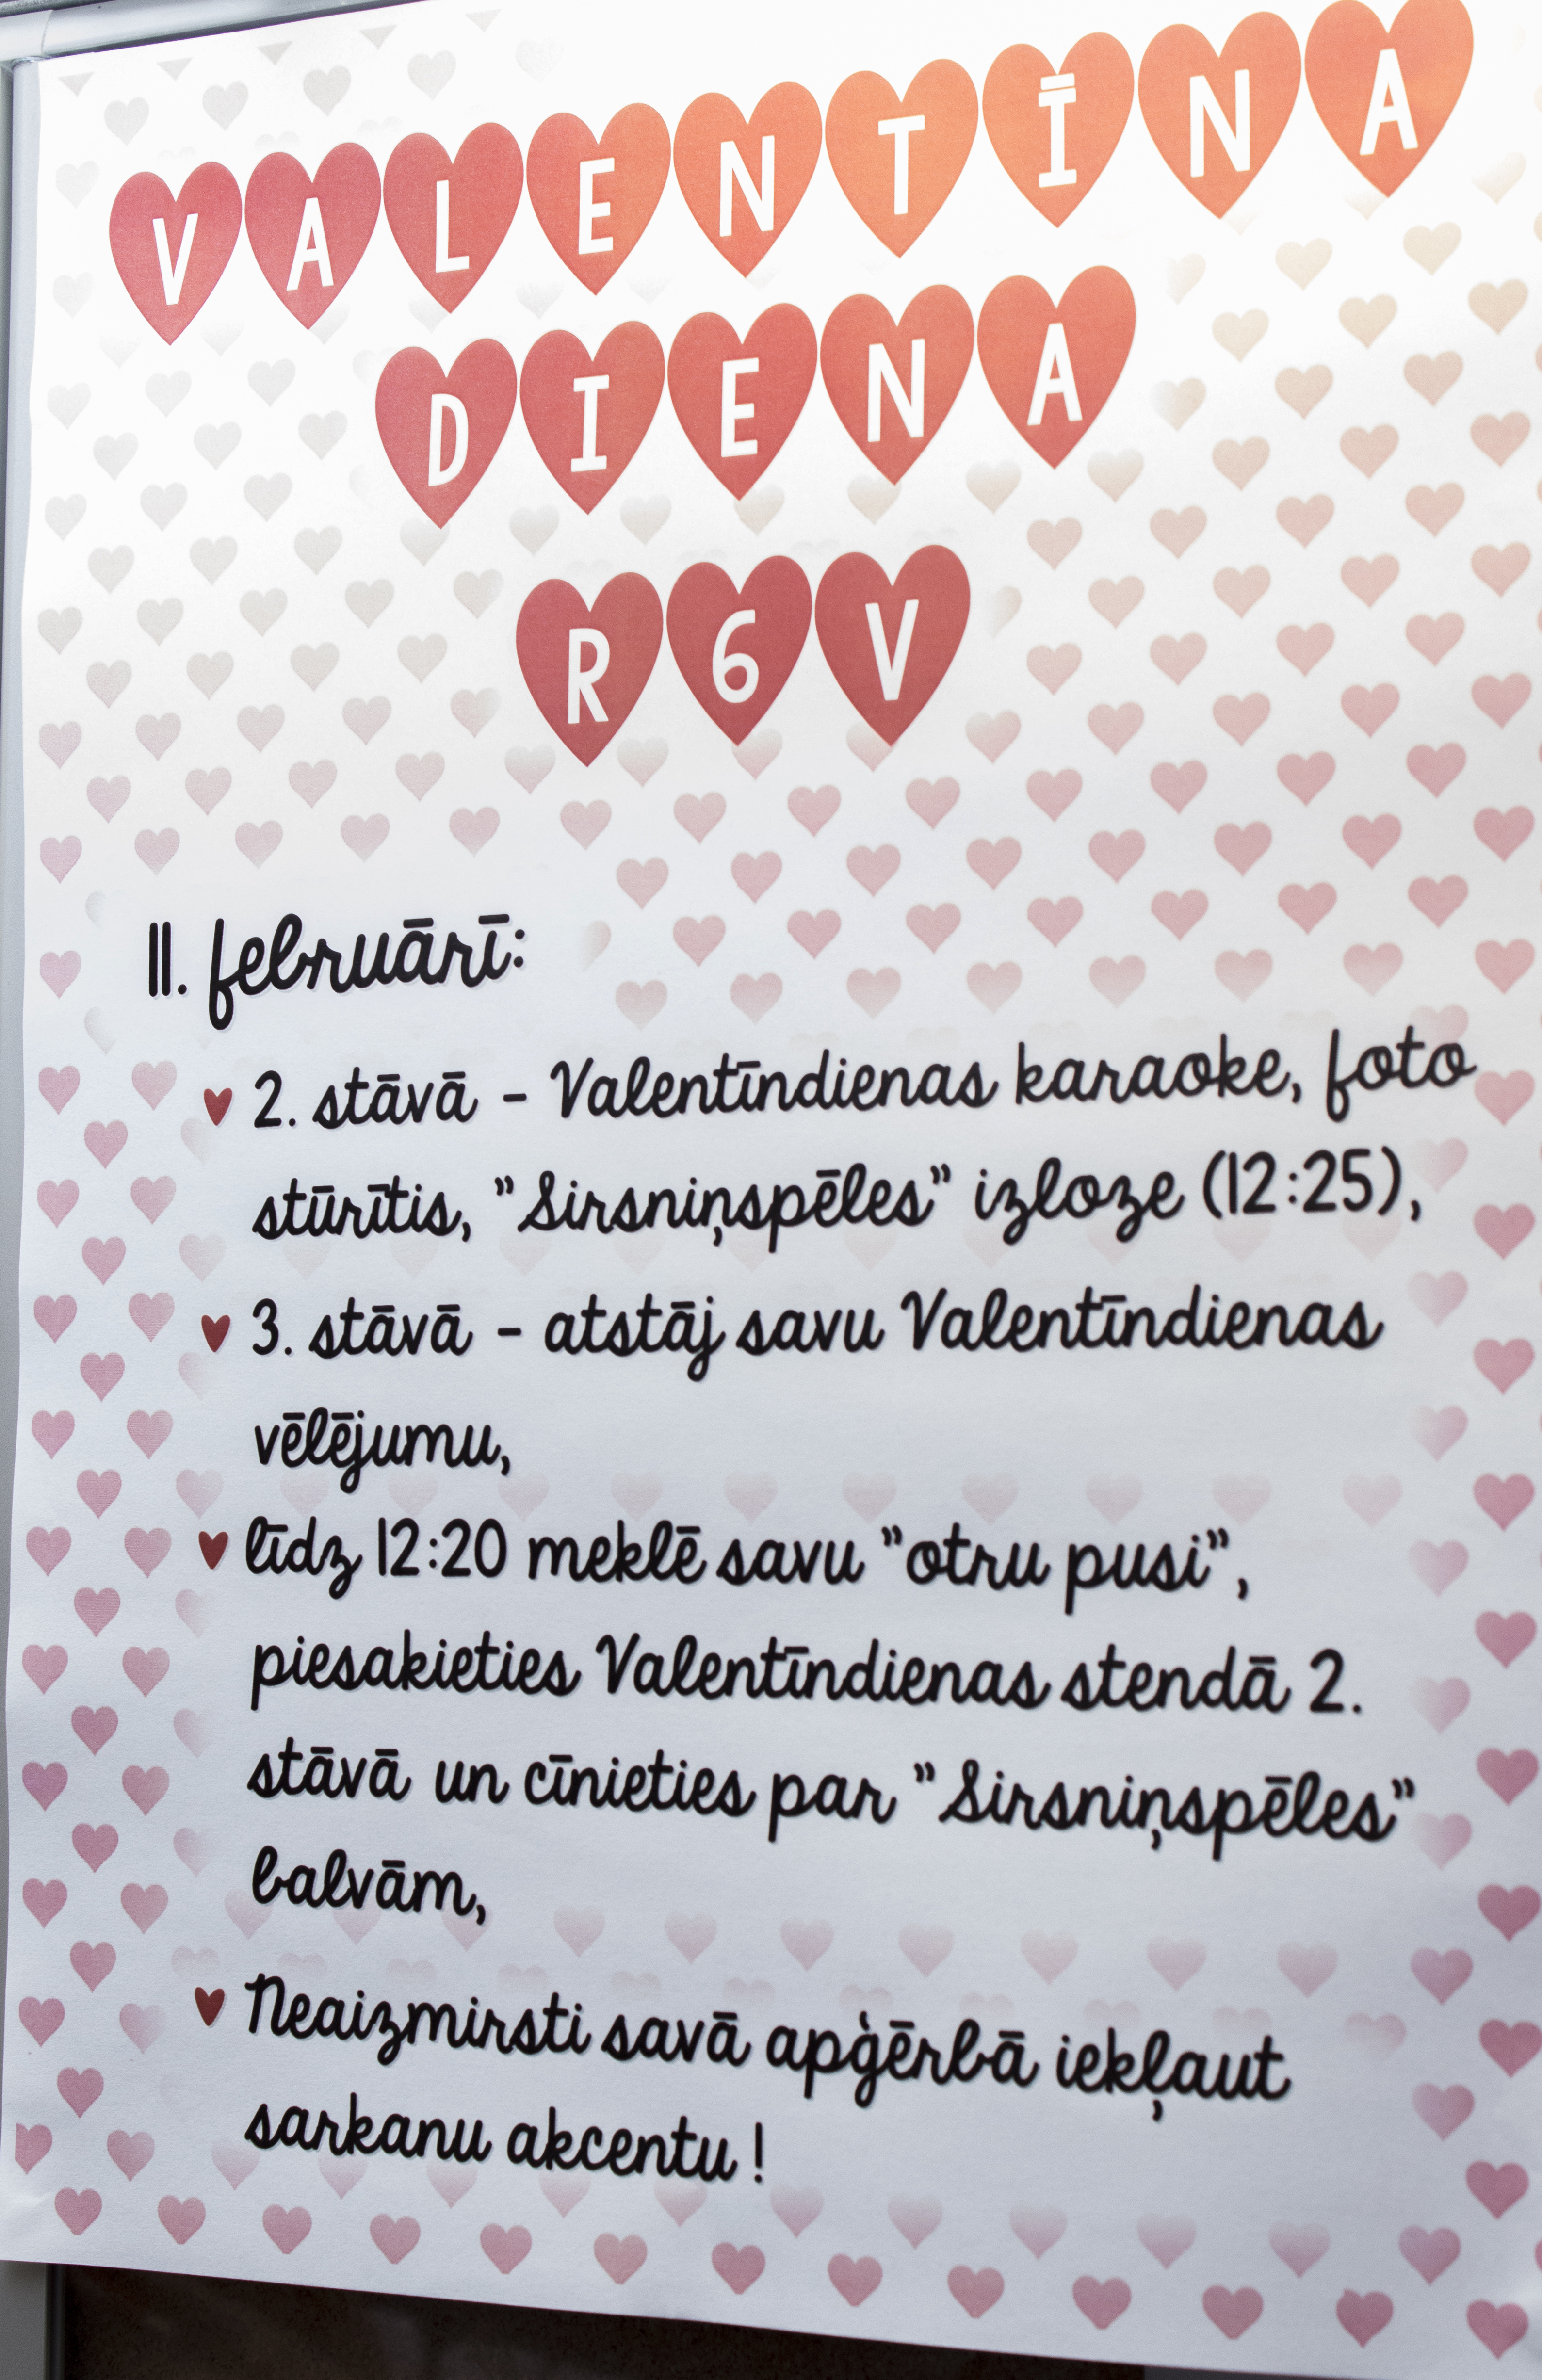 VALENTĪNA
DIENA
R6V
11. februārī:
2. stāvā - Valentīndienas karaoke, foto
stūrītis, "Sirsniņspēles" izloze (12:25),
3. stāvā - atstāj savu Valentīndienas
vēlējumu,
līdz 12:20 meklē savu "otru pusi",
piesakieties Valentīndienas stendā 2.
stāvā un cīnieties par "Sirsniņspēles"
balvām,
Neaizmirsti savā apģērbā iekļaut
sarkanu akcentu!